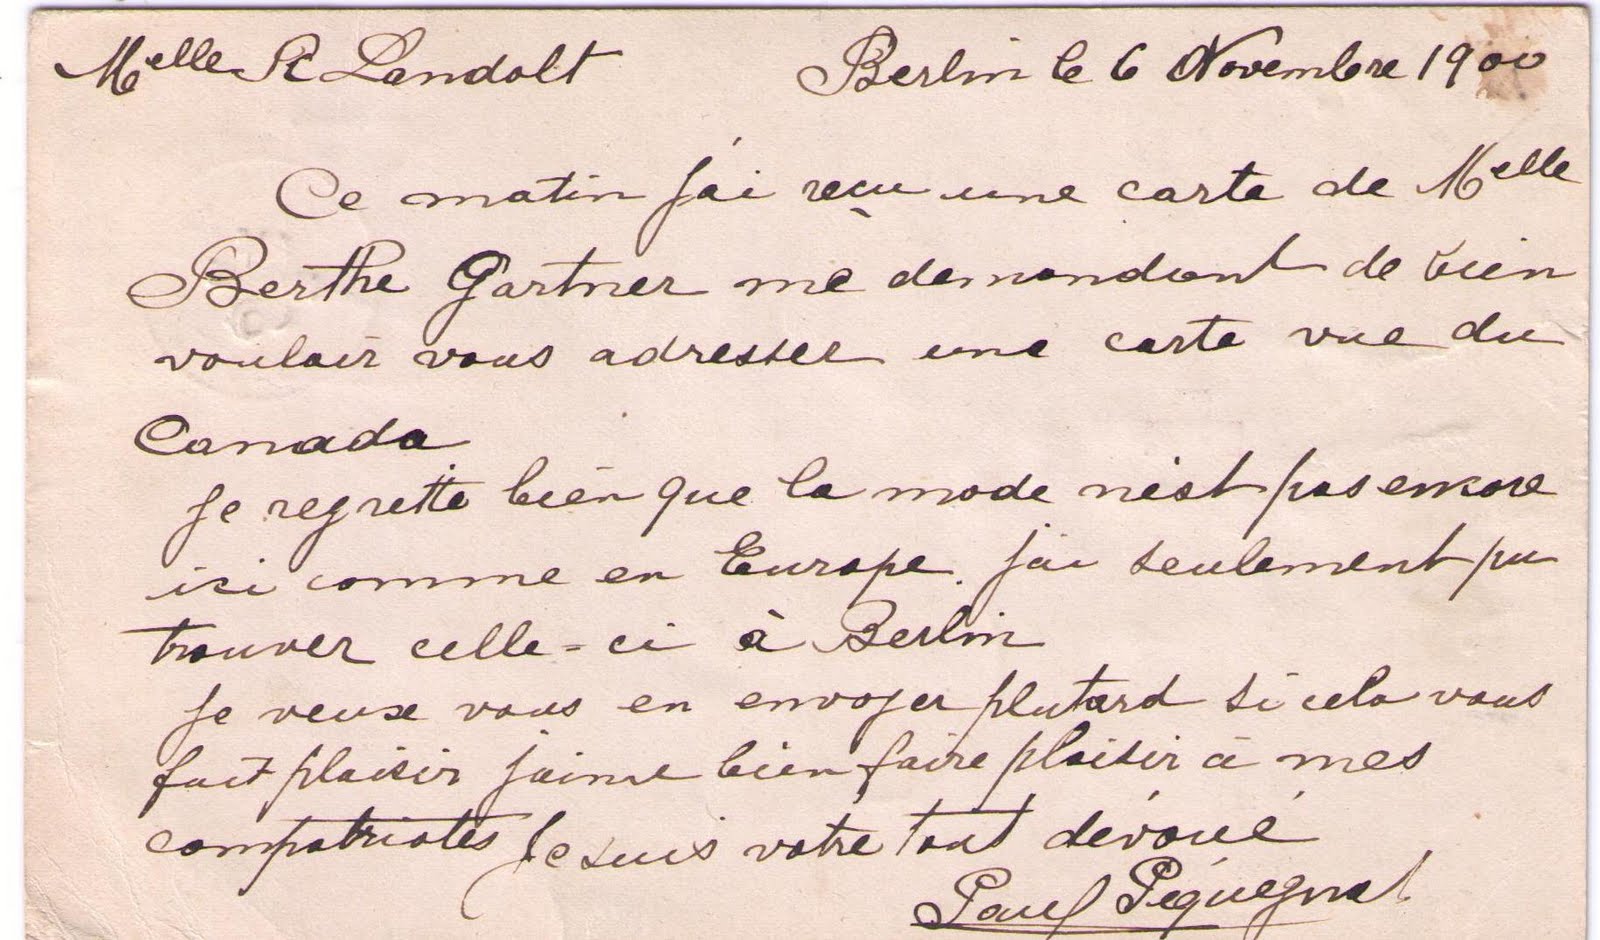 Melle R Landolt Berlin le 6 Novembre 1900
Ce matin j'ai reçu une carte de Melle
Berthe Gartner me demandant de bien
vouloir vous adresser une carte vue du
Canada
Je regrette bien que la mode n'est pas encore
ici comme en Europe. j'ai seulement pu
trouver celle-ci à Berlin
Je veux vous en envoyer plutard si cela vous
fait plaisir j'aime bien faire plaisir à mes
compatriotes Je suis votre tout dévoué
Paul Péquegnat